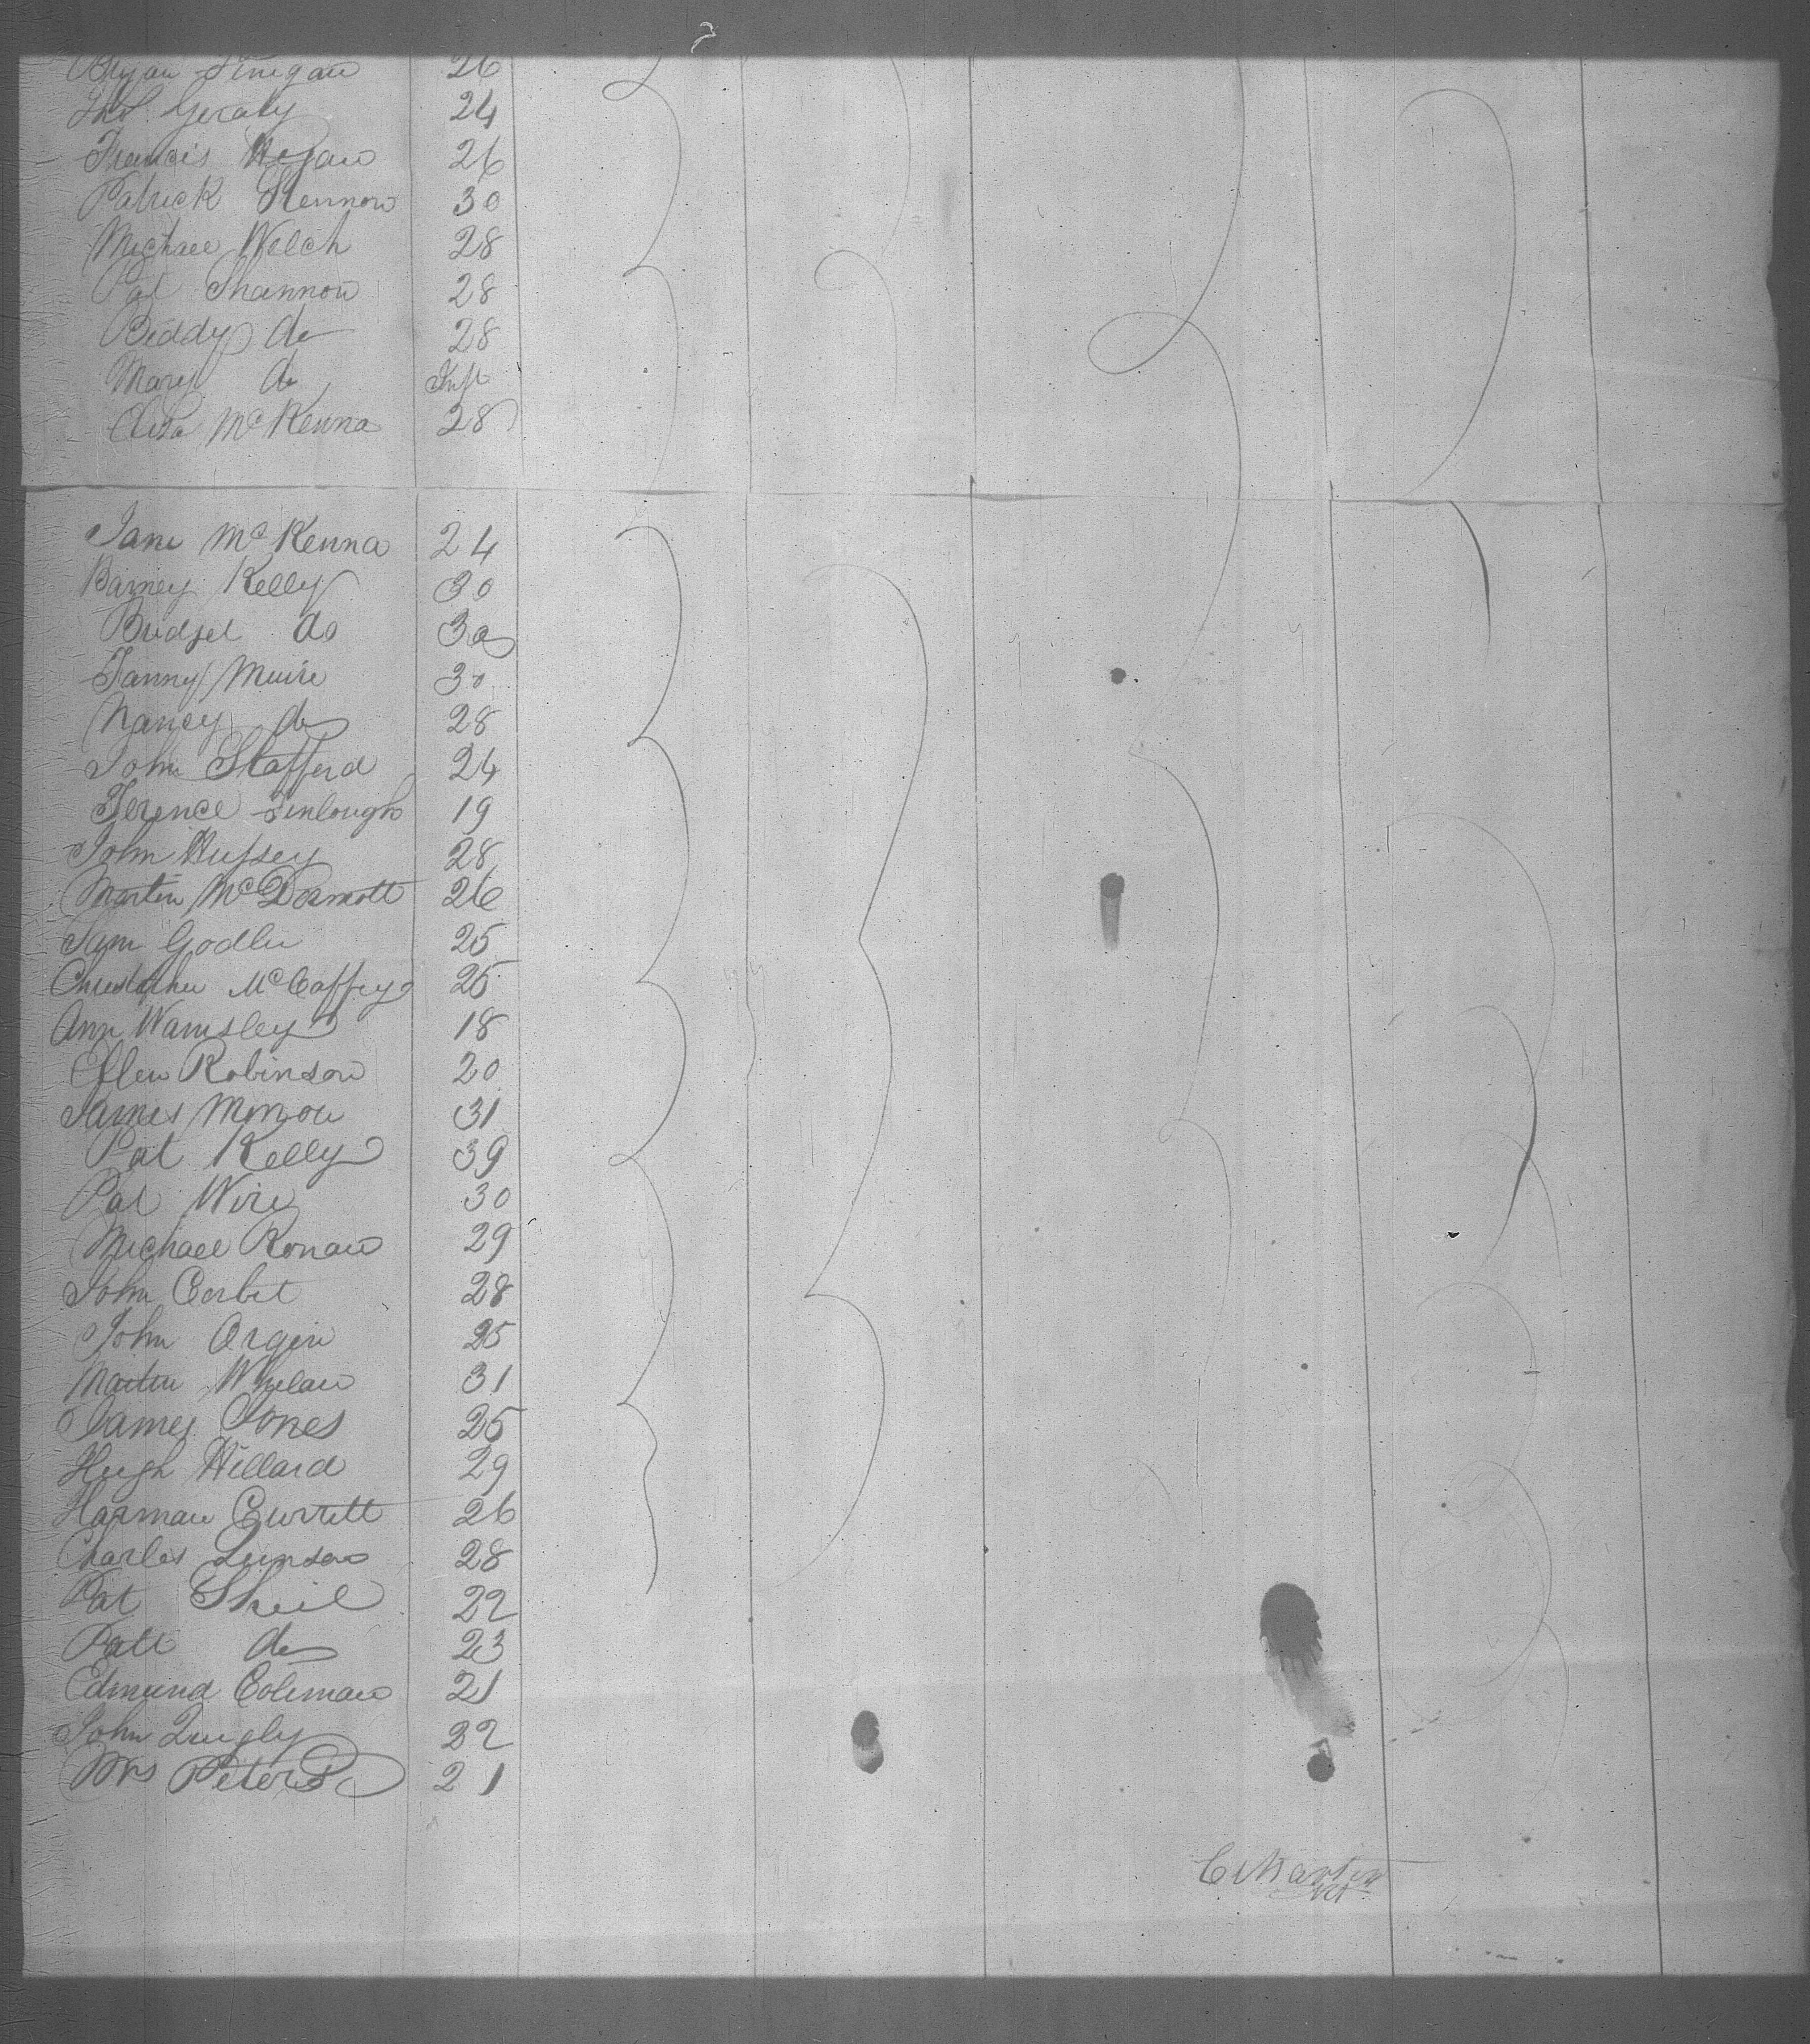 Bryan Finegan 26
Thos. Geraty 24
Francis Hogan 26
Patrick Kennon 30
Michael Welch 28
Pat Shannon 28
Biddy do 28
Mary do Inft
Eliza McKenna 28
Jane McKenna 24
Barney Kelly 30
Bridget do 30
Fanny Muire 30
Nancy do 28
John Stafford 24
Terence Finlough 19
John Hussey 28
Martin McDermott 26
Sam Godler 25
Christopher McCaffrey 25
Ann Wamsley 18
Ellen Robinson 20
James Morrow 31
Pat Kelly 39
Pat Wire 30
Michael Ronan 29
John Corbit 28
John Orgin 25
Martin Whelan 31
James Jones 25
Hugh Hillard 29
Harman Currett 26
Charles 28
Pat Sheil 22
Patt do 23
Edmund Coleman 21
John Quigly 22
Mrs Peters 21
C Martin